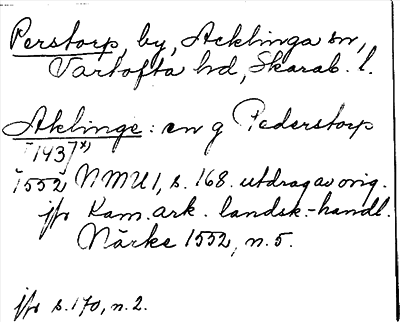 Perstorp, by, Acklinga sn,
Vartofta hd, Skarab. l.
Aklinge: en g Pederstorp
[1437]x)
1552 NMU 1, s. 168. utdrag av orig.
jfr Kam. ark. landsk.-handl.
Närke 1552, n. 5.
jfr s. 170, n. 2.